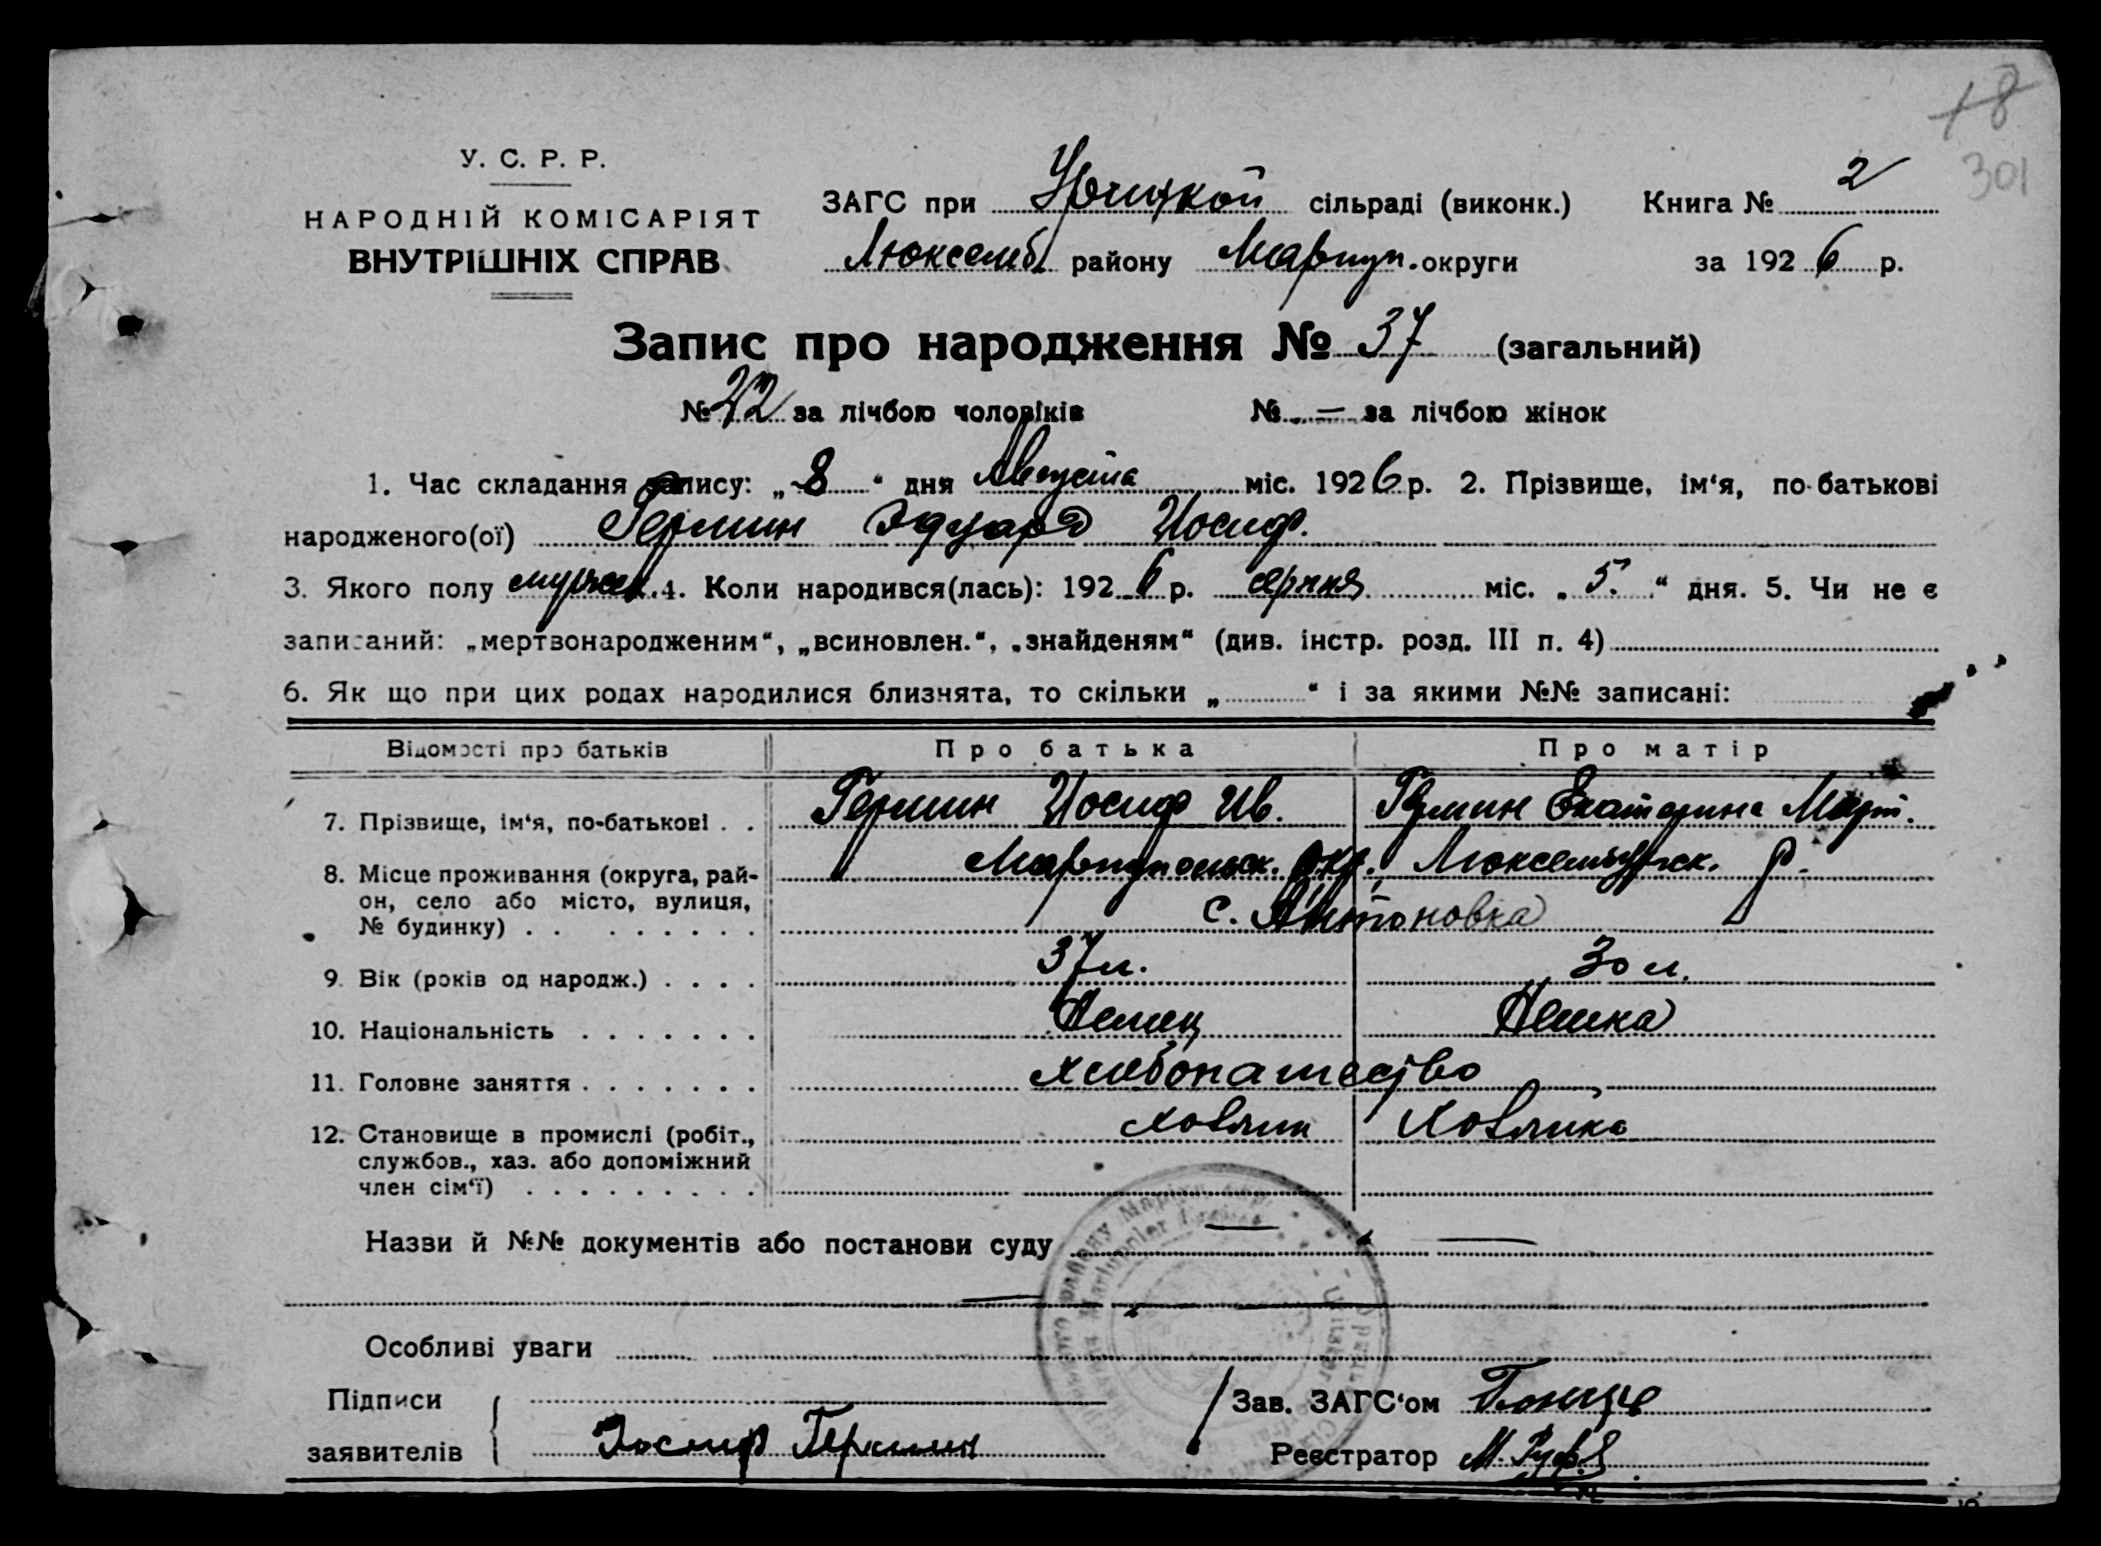 18
301
У. С. Р. Р.
НАРОДНІЙ КОМІСАРІЯТ
ВНУТРІШНІХ СПРАВ
ЗАГС при Урицкой сільраді (виконк.) Книга № 2
Люксемб. району Мариуп. округи за 1926 р.
Запис про народження № 37 (загальний)
№ 22 за лічбою чоловіків № — за лічбою жінок
1. Час складання запису: „8“ дня Августа міс. 1926 р. 2. Прізвище, ім‘я, по-батькові
народженого(ої) Гермин Эдуард Иосиф.
3. Якого полу мужеск. 4. Коли народився(лась): 1926 р. серпня міс. „5.“ дня. 5. Чи не є
записаний: „мертвонародженим“, „всиновлен.“, „знайденям“ (див. інстр. розд. III п. 4)
6. Як що при цих родах народилися близнята, то скільки „ “ і за якими №№ записані:
Відомості про батьків Про батька Про матір
7. Прізвище, ім‘я, по-батькові . . Гермин Иосиф Ив. Гермин Екатерина Март.
8. Місце проживання (округа, рай- Мариупольск. окр., Люксембургск. р.
он, село або місто, вулиця, с. Антоновка
№ будинку) . . . . . . . . .
9. Вік (років од народж.) . . . . 37 л. 30 л.
10. Національність . . . . . . . Немец Немка
11. Головне заняття . . . . . . . хлебопашество
12. Становище в промислі (робіт., Хозяин Хозяйка
службов., хаз. або допоміжний
член сім‘ї) . . . . . . . . .
Назви й №№ документів або постанови суду — —
Особливі уваги
Підписи Зав. ЗАГС‘ом
заявителів Иосиф Гермин Реєстратор М.